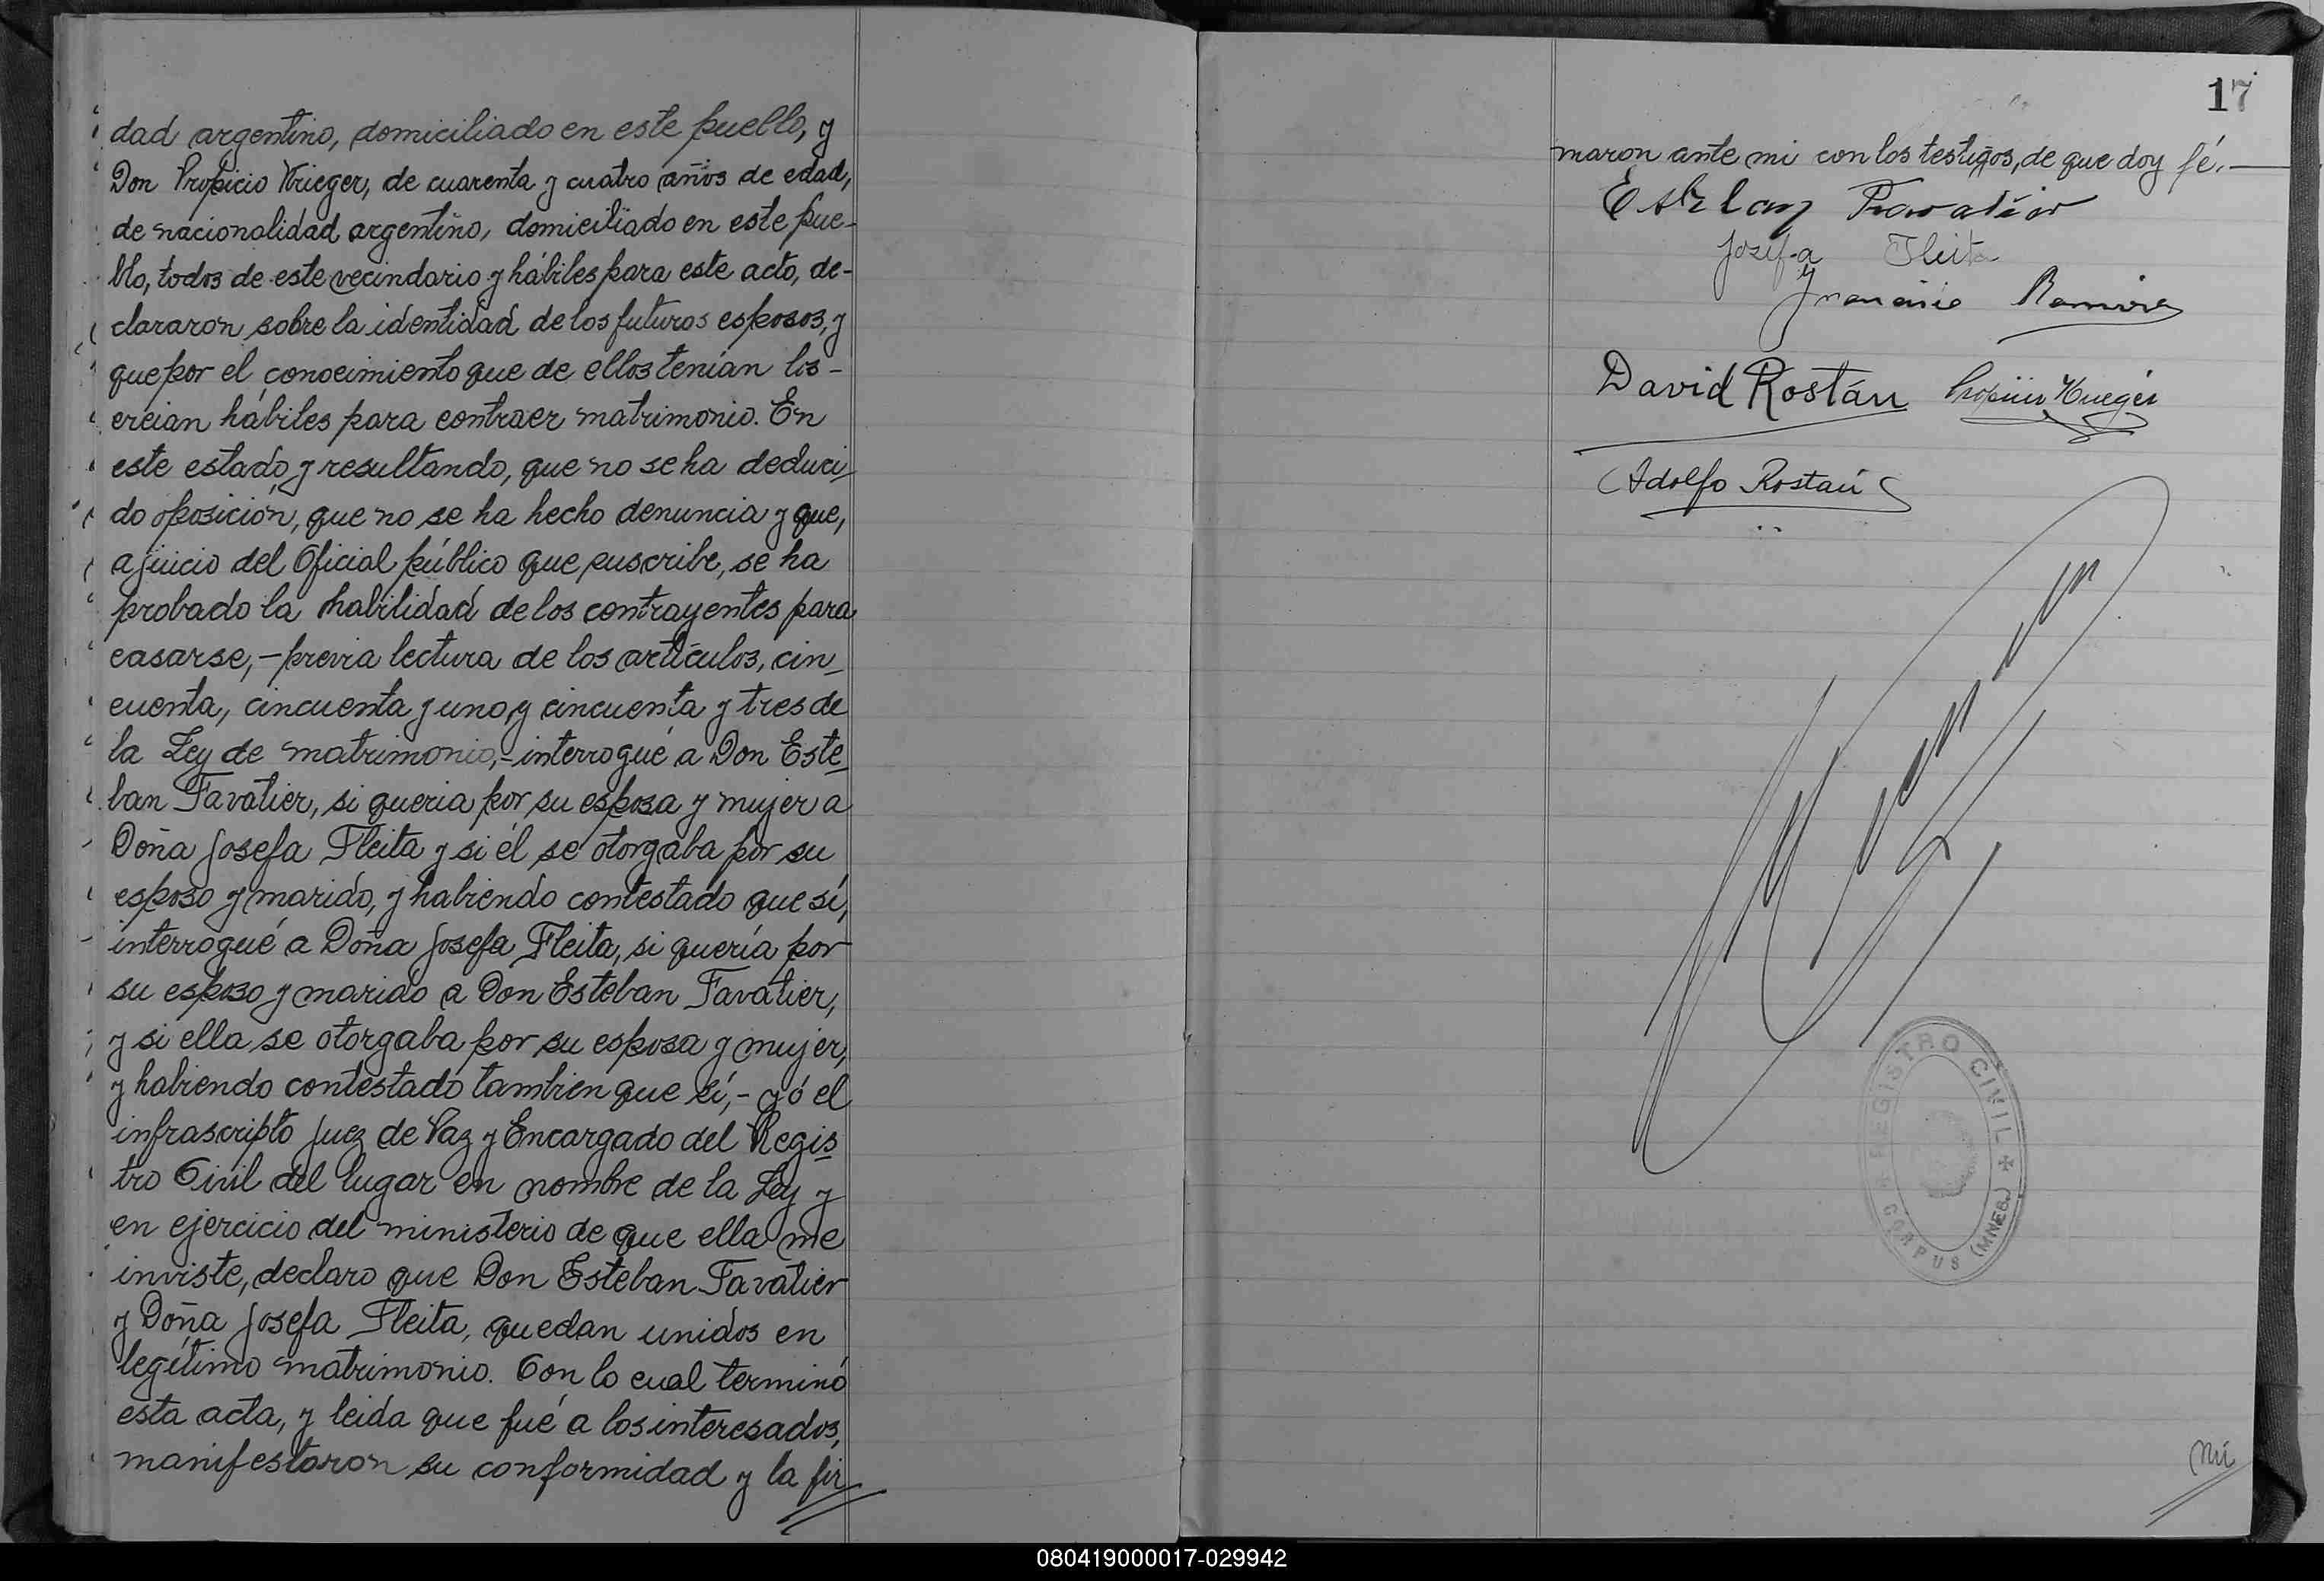 dad argentino, domiciliado en este pueblo, y
Don Propicio Krieger, de cuarenta y cuatro años de edad,
de nacionalidad argentino, domiciliado en este pue-
blo, todos de este vecindario y hábiles para este acto, de-
clararon sobre la identidad de los futuros esposos, y
que por el conocimiento que de ellos tenían los-
creian hábiles para contraer matrimonio. En
este estado y resultando, que no se ha deduci-
do oposición, que no se ha hecho denuncia y que,
a juicio del Oficial público que suscribe, se ha
probado la habilidad de los contrayentes para
casarse,-previa lectura de los artículos, cin-
cuenta, cincuenta y uno, y cincuenta y tres de
la Ley de matrimonio,-interrogué a Don Este-
ban Favatier, si queria por su esposa y mujer a
Doña Josefa Fleita y si él se otorgaba por su
esposo y marido, y habiendo contestado que sí,
interrogué a Doña Josefa Fleita, si quería por
su esposo y marido a Don Esteban Favatier,
y si ella se otorgaba por su esposa y mujer,
y habiendo contestado tambien que sí,- yó el
infrascripto Juez de Paz y Encargado del Regis-
tro Civil del lugar en nombre de la Ley y
en ejercicio del ministerio de que ella me
inviste, declaro que Don Esteban Favatier
y Doña Josefa Fleita, quedan unidos en
legítimo matrimonio. Con lo cual terminó
esta acta, y leida que fué a los interesados,
manifestaron su conformidad y la fir
17
maron ante mi con los testigos, de que doy fé.-
Josefa Fleita
Ramirez
David Rostán Propicio Krieger
Adolfo Rostán
REGISTRO CIVIL
CORPUS (MNES.)
080419000017-029942